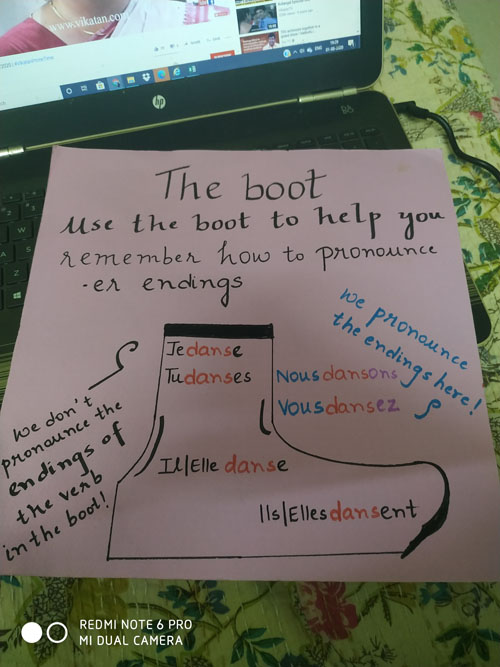 www.vikatan.com
hp
The boot
Use the boot to help you
remember how to pronounce
-er endings
we pronounce
the endings here!
Je danse
Tu danses
Nous dansons
Vous dansez
we don't
pronounce the
endings of
the verb
in the boot!
Il/Elle danse
Ils/Elles dansent
REDMI NOTE 6 PRO
MI DUAL CAMERA